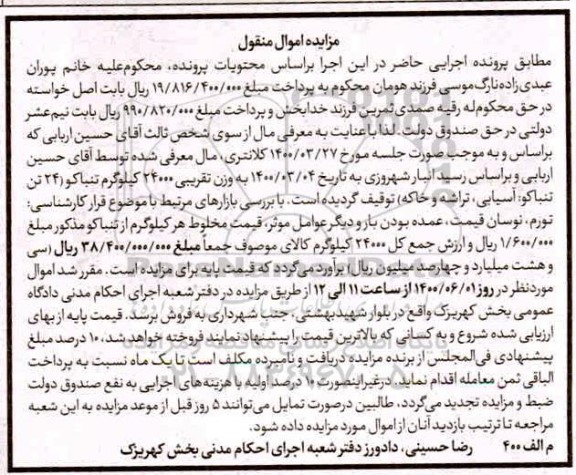 مزایده اموال منقول
مطابق پرونده اجرایی حاضر در این اجرا براساس محتویات پرونده، محکوم‌علیه خانم پوران
عبدی‌زاده‌نارگ‌موسی فرزند هومان محکوم به پرداخت مبلغ ۱۹/۸۱۶/۴۰۰/۰۰۰ ریال بابت اصل خواسته
در حق محکوم‌له رقیه صمدی تبرین فرزند خدابخش و پرداخت مبلغ ۹۹۰/۸۲۰/۰۰۰ ریال بابت نیم‌عشر
دولتی در حق صندوق دولت. لذا با عنایت به معرفی مال از سوی شخص ثالث آقای حسین اربابی که
براساس و به موجب صورت جلسه مورخ ۱۴۰۰/۰۳/۲۷ کلانتری، مال معرفی شده توسط آقای حسین
اربابی و براساس رسید انبار شهروزی به تاریخ ۱۴۰۰/۰۳/۰۴ به وزن تقریبی ۲۴۰۰۰ کیلوگرم تنباکو (۲۴ تن
تنباکو: آسیابی، تراشه و خاکه) توقیف گردیده است. با بررسی بازارهای مرتبط با موضوع قرار کارشناسی:
تورم، نوسان قیمت، عمده بودن بار و دیگر عوامل موثر، قیمت مخلوط هر کیلوگرم از تنباکو مذکور مبلغ
۱/۶۰۰/۰۰۰ ریال و ارزش جمع کل ۲۴۰۰۰ کیلوگرم کالای موصوف جمعاً مبلغ ۳۸/۴۰۰/۰۰۰/۰۰۰ ریال (سی
و هشت میلیارد و چهارصد میلیون ریال) برآورد می‌گردد که قیمت پایه برای مزایده است. مقرر شد اموال
موردنظر در روز ۱۴۰۰/۰۶/۰۱ از ساعت ۱۱ الی ۱۲ از طریق مزایده در دفتر شعبه اجرای احکام مدنی دادگاه
عمومی بخش کهریزک واقع در بلوار شهیدبهشتی، جنب شهرداری به فروش برسد. قیمت پایه از بهای
ارزیابی شده شروع و به کسانی که بالاترین قیمت را پیشنهاد نمایند فروخته خواهد شد، ۱۰ درصد مبلغ
پیشنهادی فی‌المجلس از برنده مزایده دریافت و نامبرده مکلف است تا یک ماه نسبت به پرداخت
الباقی ثمن معامله اقدام نماید. درغیراینصورت ۱۰ درصد اولیه با هزینه‌های اجرایی به نفع صندوق دولت
ضبط و مزایده تجدید می‌گردد، طالبین درصورت تمایل می‌توانند ۵ روز قبل از موعد مزایده به این شعبه
مراجعه تا ترتیب بازدید آنان از اموال مورد مزایده داده شود.
م الف ۴۰۰ رضا حسینی، دادورز دفتر شعبه اجرای احکام مدنی بخش کهریزک